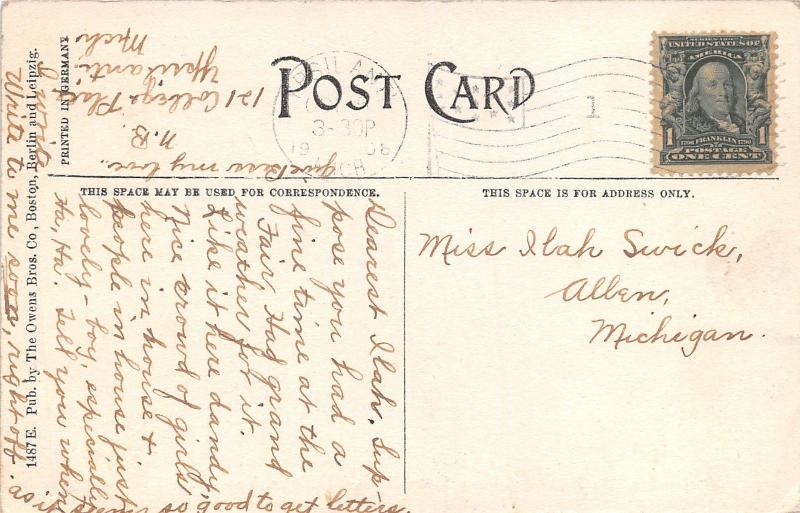 POST CARD
THIS SPACE MAY BE USED FOR CORRESPONDENCE.
THIS SPACE IS FOR ADDRESS ONLY.
PRINTED IN GERMANY
1487 E. Pub. by The Owens Bros. Co., Boston, Berlin and Leipzig.
3-30P
19 08
MICH.
1
SERIES 1902
UNITED STATES OF
AMERICA
1706 FRANKLIN 1790
1 POSTAGE 1
ONE CENT
Miss Ilah Swick,
Allen,
Michigan.
Dearest Ilah, Sup-
pose you had a
fine time at the
Fair. Had grand
weather for it.
Like it here dandy,
Nice crowd of girls
here in house &
people in house just
lovely - boy, especially
Ha, Ha. Tell you when
Write to me soon, right off.
as it seems so good to get letters.
my love.
N.B.
121 College Place
Ypsilanti
Mich